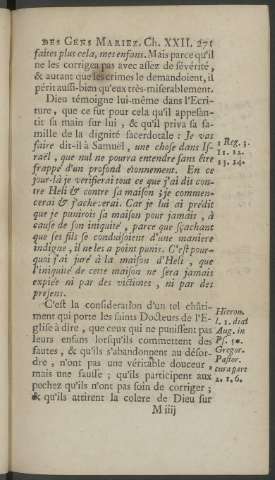 DES GENS MARIEZ. Ch. XXII. 271
faites plus cela, mes enfans. Mais parce qu'il
ne les corrigea pas avec assez de sévérité,
& autant que les crimes le demandoient, il
périt aussi-bien qu'eux très-miserablement.
Dieu témoigne lui-même dans l'Ecri-
ture, que ce fut pour cela qu'il appesan-
tit sa main sur lui, & qu'il priva sa fa-
mille de la dignité sacerdotale : Je vas
faire dit-il à Samuël, une chose dans Is-
raël, que nul ne pourra entendre sans être
frappé d'un profond étonnement. En ce
jour-là je verifierai tout ce que j'ai dit con-
tre Heli & contre sa maison : je commen-
cerai & j'acheverai. Car je lui ai prédit
que je punirois sa maison pour jamais, à
cause de son iniquité, parce que sçachant
que ses fils se conduisoient d'une maniere
indigne, il ne les a point punis. C'est pour-
quoi j'ai juré à la maison d'Heli, que
l'iniquité de cette maison ne sera jamais
expiée ni par des victimes, ni par des
presens.
1 Reg. 3.
11. 12.
13. 14.
C'est la consideration d'un tel châti-
ment qui porte les saints Docteurs de l'E-
glise à dire, que ceux qui ne punissent pas
leurs enfans lorsqu'ils commettent des
fautes, & qu'ils s'abandonnent au désor-
dre, n'ont pas une véritable douceur,
mais une fausse ; qu'ils participent aux
pechez qu'ils n'ont pas soin de corriger ;
& qu'ils attirent la colere de Dieu sur
Hieron.
Aug. in
Ps. 50.
Gregor.
Pastor.
cura part
2. 1. 6.
M iiij